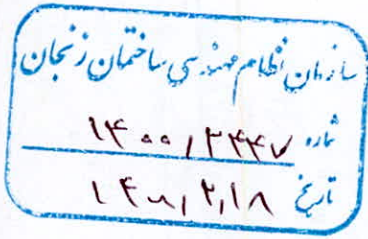 سازمان نظام مهندسی ساختمان زنجان
شماره ۱۴۰۰/۲۴۴۷
تاریخ ۱۴۰۰/۲/۱۸